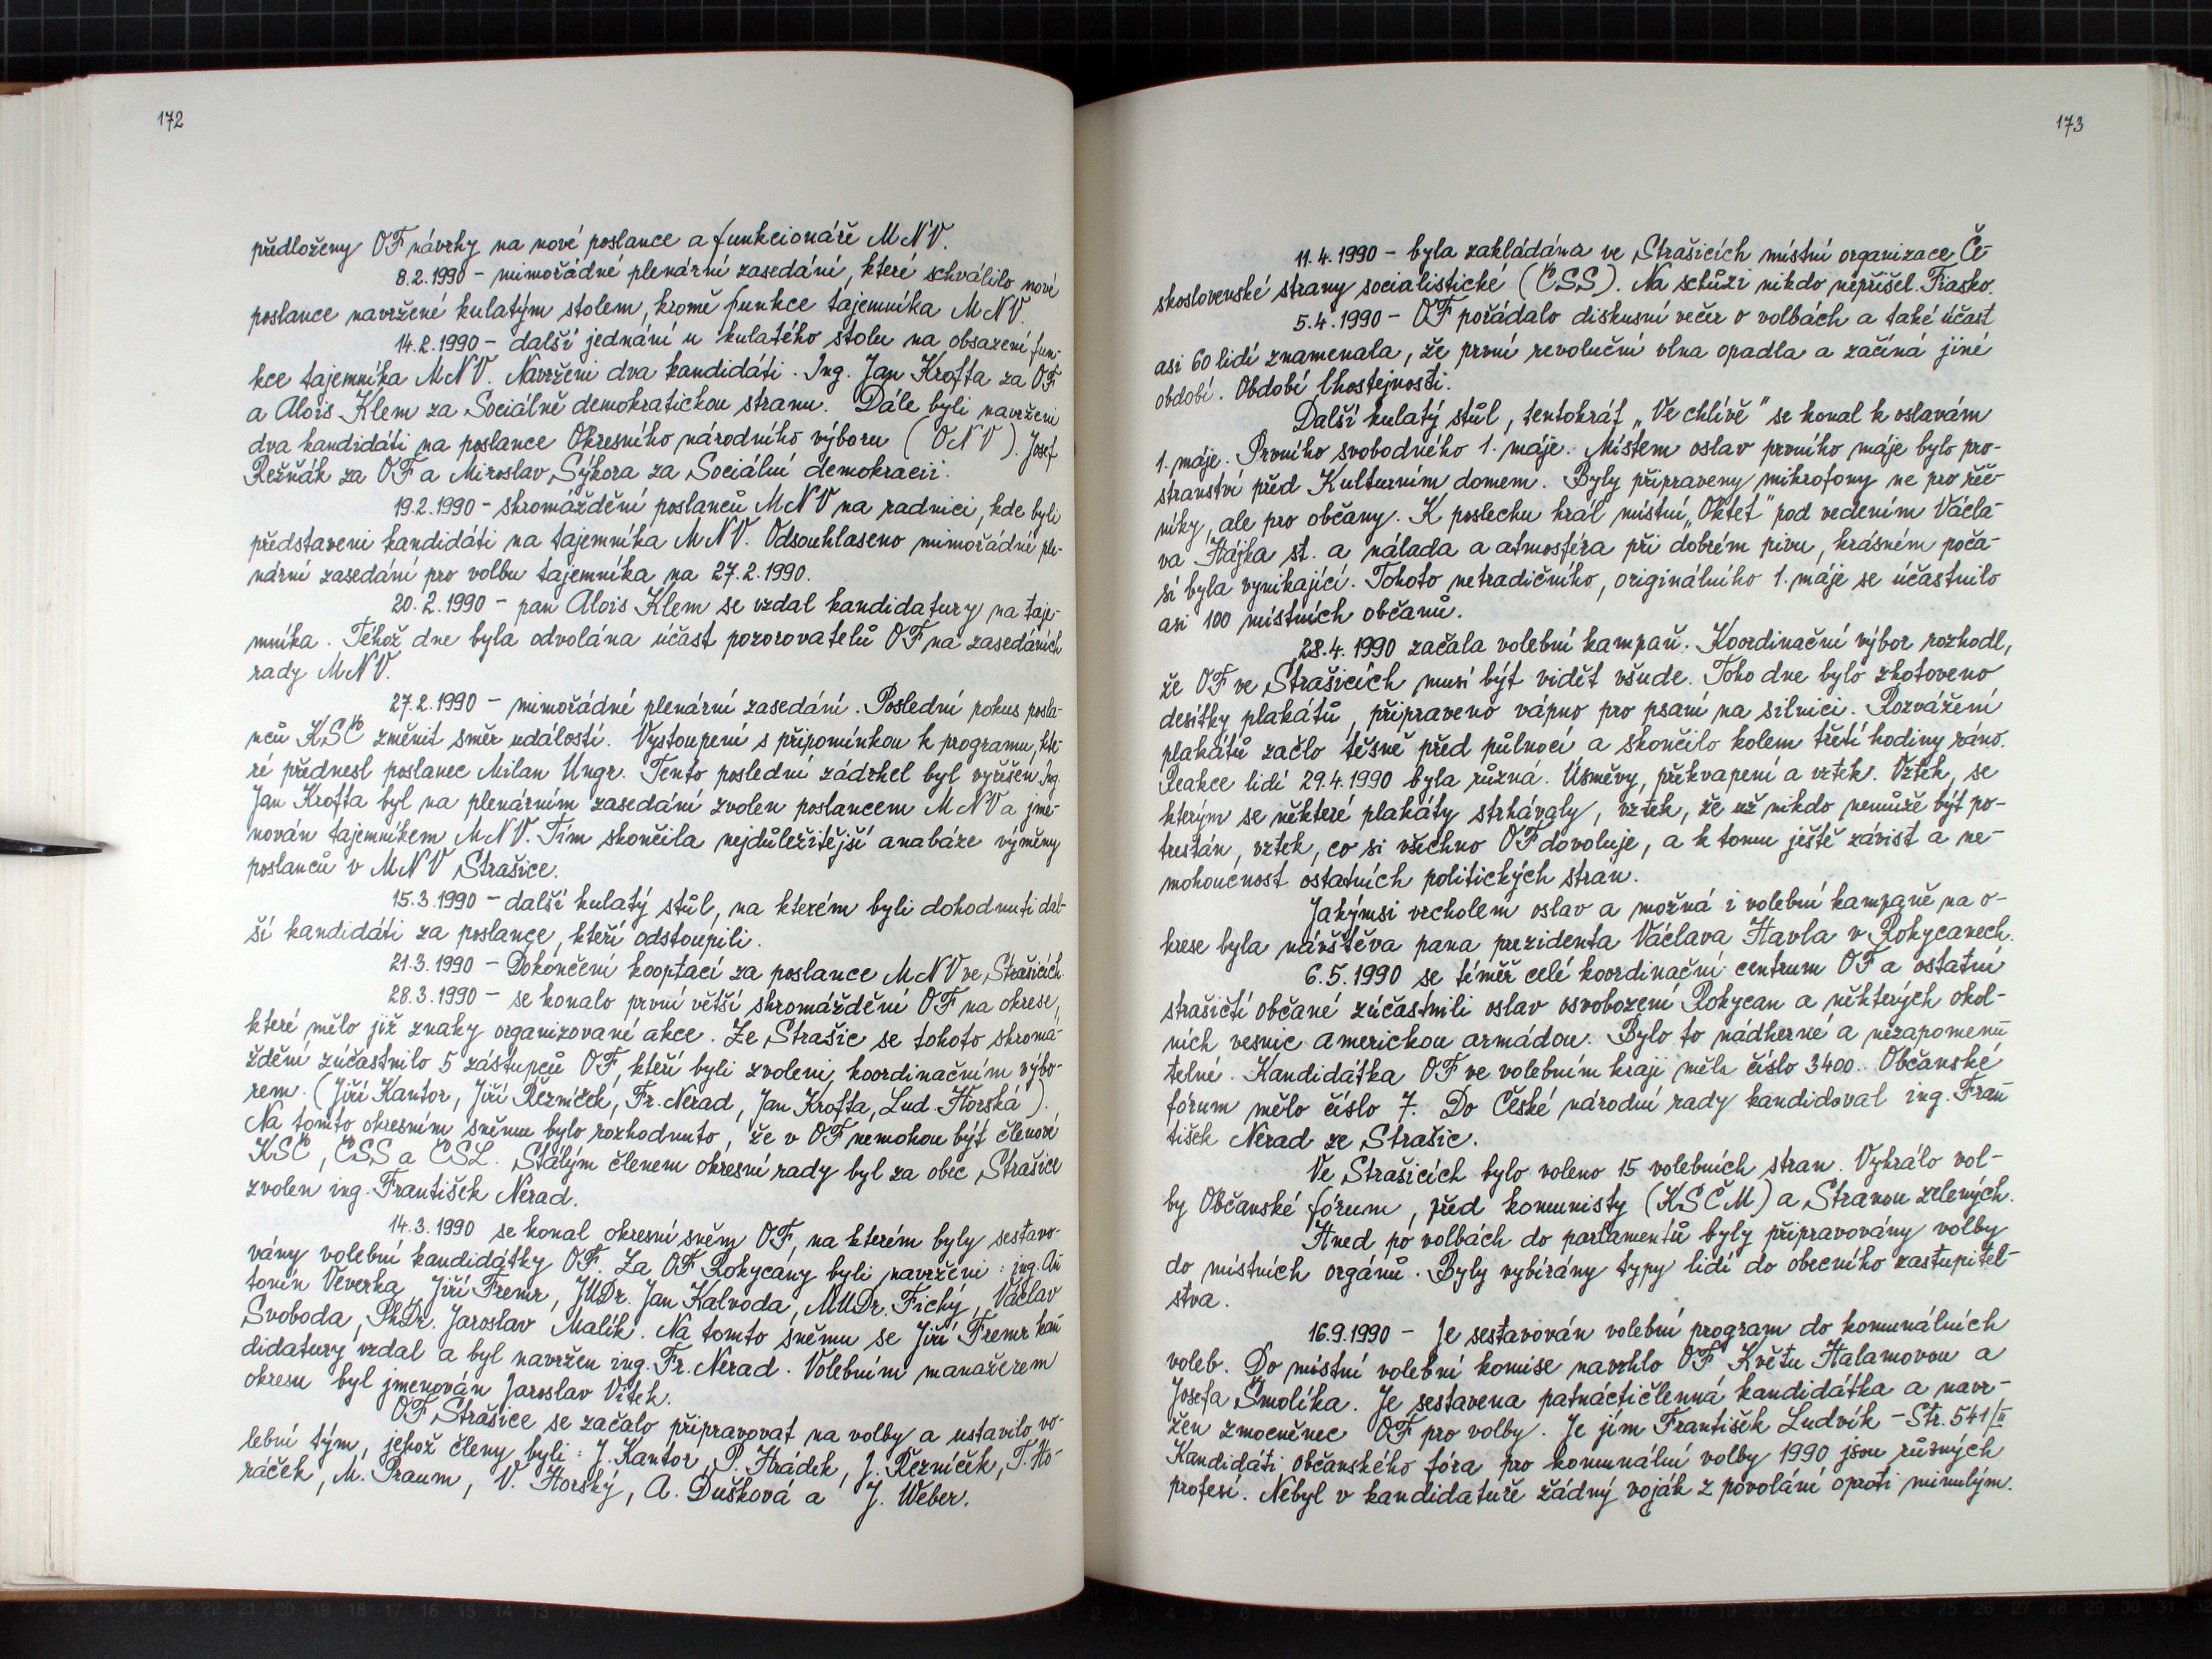 172
předloženy OF návrhy na nové poslance a funkcionáře MNV.
8.2.1990 - mimořádné plenární zasedání, které schválilo nové
poslance navržené kulatým stolem, kromě funkce tajemníka MNV.
14.2.1990 - další jednání u kulatého stolu na obsazení fun-
kce tajemníka MNV. Navrženi dva kandidáti. Ing. Jan Krofta za OF
a Alois Klem za Sociálně demokratickou stranu. Dále byli navrženi
dva kandidáti na poslance Okresního národního výboru (ONV). Josef
Režňák za OF a Miroslav Sýkora za Sociální demokracii.
19.2.1990 - shromáždění poslanců MNV na radnici, kde byli
představeni kandidáti na tajemníka MNV. Odsouhlaseno mimořádné ple-
nární zasedání pro volbu tajemníka na 27.2.1990.
20.2.1990 - pan Alois Klem se vzdal kandidatury na taje-
mníka. Téhož dne byla odvolána účast pozorovatelů OF na zasedáních
rady MNV.
27.2.1990 - mimořádné plenární zasedání. Poslední pokus posla-
nců KSČ změnit směr událostí. Vystoupení s připomínkou k programu, kte-
ré přednesl poslanec Milan Ungr. Tento poslední zádrhel byl vyřešen. Ing.
Jan Krofta byl na plenárním zasedání zvolen poslancem MNV a jme-
nován tajemníkem MNV. Tím skončila nejdůležitější anabáze výměny
poslanců v MNV Strašice.
15.3.1990 - další kulatý stůl, na kterém byli dohodnuti dal-
ší kandidáti za poslance, kteří odstoupili.
21.3.1990 - Dokončení kooptací za poslance MNV ve Strašicích.
28.3.1990 - se konalo první větší shromáždění OF na okrese,
které mělo již znaky organizované akce. Ze Strašic se tohoto shromá-
ždění zúčastnilo 5 zástupců OF, kteří byli zvoleni koordinačním výbo-
rem. (Jiří Kantor, Jiří Řezníček, Fr. Nerad, Jan Krofta, Lud. Horská).
Na tomto okresním sněmu bylo rozhodnuto, že v OF nemohou být členové
KSČ, ČSS a ČSL. Stálým členem okresní rady byl za obec Strašice
zvolen ing. František Nerad.
14.3.1990 se konal okresní sněm OF, na kterém byly sestavo-
vány volební kandidátky OF. Za OF Rokycany byli navrženi: ing. An-
tonín Veverka, Jiří Fremr, JUDr. Jan Kalvoda, MUDr. Fichý, Václav
Svoboda, PhDr. Jaroslav Malík. Na tomto sněmu se Jiří Fremr kan-
didatury vzdal a byl navržen ing. Fr. Nerad. Volebním manažerem
okresu byl jmenován Jaroslav Vítek.
OF Strašice se začalo připravovat na volby a ustavilo vo-
lební tým, jehož členy byli: J. Kantor, P. Hrádek, J. Řezníček, T. Ho-
ráček, M. Praum, V. Horský, A. Dušková a J. Weber.
173
11.4.1990 - byla zakládána ve Strašicích místní organizace Če-
skoslovenské strany socialistické (ČSS). Na schůzi nikdo nepřišel. Fiasko.
5.4.1990 - OF pořádalo diskusní večer o volbách a také účast
asi 60 lidí znamenala, že první revoluční vlna opadla a začíná jiné
období. Období lhostejnosti.
Další kulatý stůl, tentokrát „Ve chlívě" se konal k oslavám
1. máje. Prvního svobodného 1. máje. Místem oslav prvního máje bylo pro-
stranství před Kulturním domem. Byly připraveny mikrofony ne pro řeč-
níky, ale pro občany. K poslechu hrál místní „Oktet" pod vedením Václa-
va Hájka st. a nálada a atmosféra při dobrém pivu, krásném poča-
sí byla vynikající. Tohoto netradičního, originálního 1. máje se účastnilo
asi 100 místních občanů.
28.4.1990 začala volební kampaň. Koordinační výbor rozhodl,
že OF ve Strašicích musí být vidět všude. Toho dne bylo zhotoveno
desítky plakátů, připraveno vápno pro psaní na silnici. Rozvážení
plakátů začlo těsně před půlnocí a skončilo kolem třetí hodiny ráno.
Reakce lidí 29.4.1990 byla různá. Úsměvy, překvapení a vztek. Vztek, se
kterým se některé plakáty strhávaly, vztek, že už nikdo nemůže být po-
trestán, vztek, co si všechno OF dovoluje, a k tomu ještě závist a ne-
mohoucnost ostatních politických stran.
Jakýmsi vrcholem oslav a možná i volební kampaně na o-
krese byla návštěva pana prezidenta Václava Havla v Rokycanech.
6.5.1990 se téměř celé koordinační centrum OF a ostatní
strašičtí občané zúčastnili oslav osvobození Rokycan a některých okol-
ních vesnic americkou armádou. Bylo to nádherné a nezapomenu-
telné. Kandidátka OF ve volebním kraji měla číslo 3400. Občanské
fórum mělo číslo 7. Do České národní rady kandidoval ing. Fran-
tišek Nerad ze Strašic.
Ve Strašicích bylo voleno 15 volebních stran. Vyhrálo vol-
by Občanské fórum, před komunisty (KSČM) a Stranou zelených.
Hned po volbách do parlamentů byly připravovány volby
do místních orgánů. Byly vybírány typy lidí do obecního zastupitel-
stva.
16.9.1990 - Je sestavován volební program do komunálních
voleb. Do místní volební komise navrhlo OF Květu Halamovou a
Josefa Šmolíka. Je sestavena patnáctičlenná kandidátka a navr-
žen zmocněnec OF pro volby. Je jím František Ludvík - Str. 541/II
Kandidáti občanského fóra pro komunální volby 1990 jsou různých
profesí. Nebyl v kandidatuře žádný voják z povolání oproti minulým.